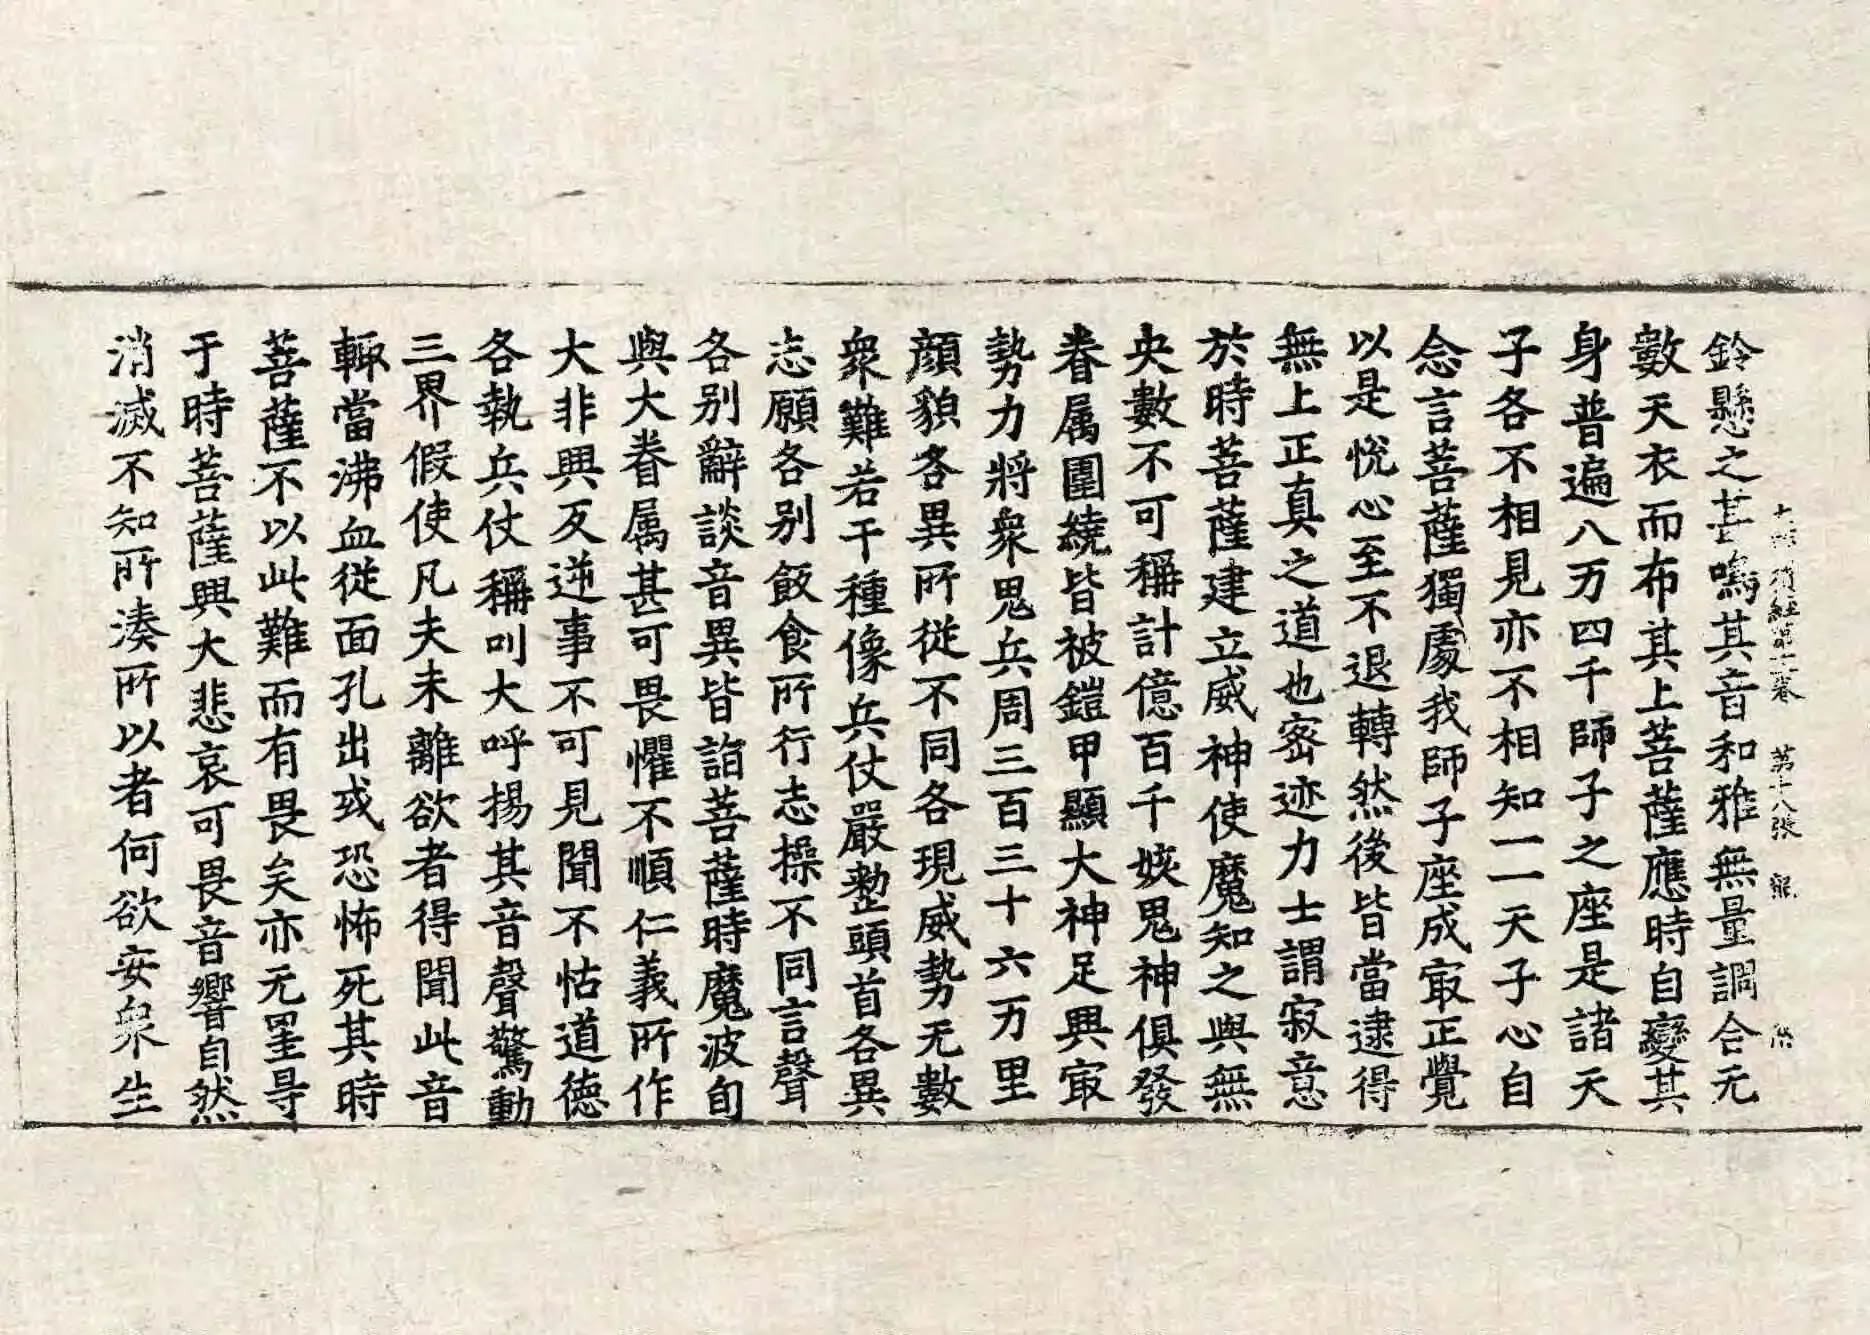 經第十二卷 第十八張 龍
鈴懸之甚鳴其音和雅無量調合无
數天衣而布其上菩薩應時自變其
身普遍八万四千師子之座是諸天
子各不相見亦不相知一一天子心自
念言菩薩獨處我師子座成㝡正覺
以是恱心至不退轉然後皆當逮得
無上正真之道也密迹力士謂寂意
於時菩薩建立威神使魔知之與無
央數不可稱計億百千姟鬼神俱發
眷属圍繞皆被鎧甲顯大神足興㝡
勢力將衆鬼兵周三百三十六万里
顔貌各異所從不同各現威勢无數
衆難若干種像兵仗嚴整頭首各異
志願各別飯食所行志操不同言聲
各別辭談音異皆詣菩薩時魔波旬
與大眷属甚可畏懼不順仁義所作
大非興反逆事不可見聞不怙道德
各執兵仗稱叫大呼揚其音聲驚動
三界假使凡夫未離欲者得聞此音
輙當沸血從面孔出或恐怖死其時
菩薩不以此難而有畏矣亦无罣㝵
于時菩薩興大悲哀可畏音響自然
消滅不知所湊所以者何欲安衆生